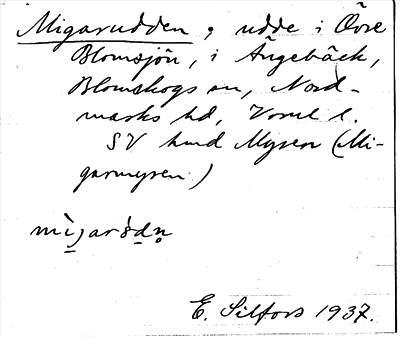 Migarudden, udde i Övre
Blomsjön, i Ängebäck,
Blomskogs sn, Nord-
marks hd, Vrml l.
SV hmd Mysen (Mi-
garmysen)
E. Silfors 1937.